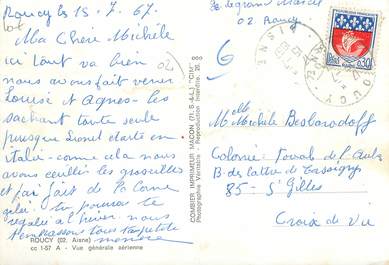 Roucy le 15. 7. 67.
Ma Chère Michèle
ici tout va bien
nous avons fait venir
Louise et Agnes - les
sachant toute seule
puisque Lionel est en
italie - comme cela nous
avons cueilli les groseilles
et j'ai fait de la bonne
gelée tu pourras te
régaler a l'hiver. nous
t'embrassons tous ta petite
ROUCY (02. Aisne)
cc 1-57 A - Vue générale aérienne
COMBIER IMPRIMEUR MACON (71. S.-&-L.) "CIM"
Photographie Véritable - Reproduction Interdite.
02 Roucy
AISNE
ROUCY
0,30
Melle Michèle Besborodoff
Colonie Toval de l'Aube
B. de lattre de Tassigny
85 - St Gilles
Croix de Vie